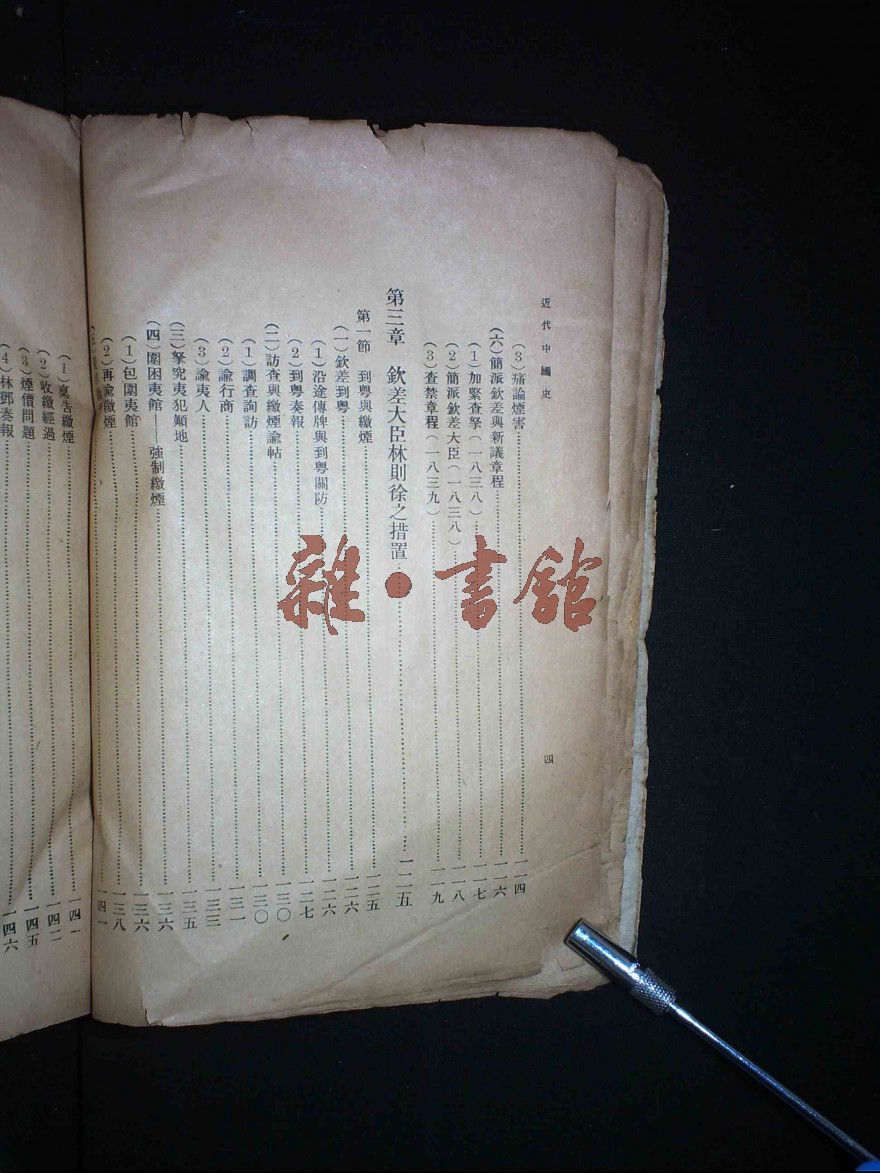 近代中國史 四
(3)痛論煙害……一一四
(六)簡派欽差與新議章程……一一六
(1)加緊查拏(一八三八)……一一七
(2)簡派欽差大臣(一八三八)……一一八
(3)查禁章程(一八三九)……一一九
第三章 欽差大臣林則徐之措置……一二五
第一節 到粵與繳煙……一二五
(一)欽差到粵……一二六
(1)沿途傳牌與到粵關防……一二六
(2)到粵奏報……一二七
(二)訪查與繳煙諭帖……一三〇
(1)調查詢訪……一三〇
(2)諭行商……一三一
(3)諭夷人……一三三
(三)拏究夷犯顛地……一三五
(四)圍困夷館——強制繳煙……一三六
(1)包圍夷館……一三六
(2)再諭繳煙……一三八
一四一
(1)稟告繳煙……一四一
(2)收繳經過……一四二
(3)煙價問題……一四五
(4)林鄧奏報……一四六
雜·書館